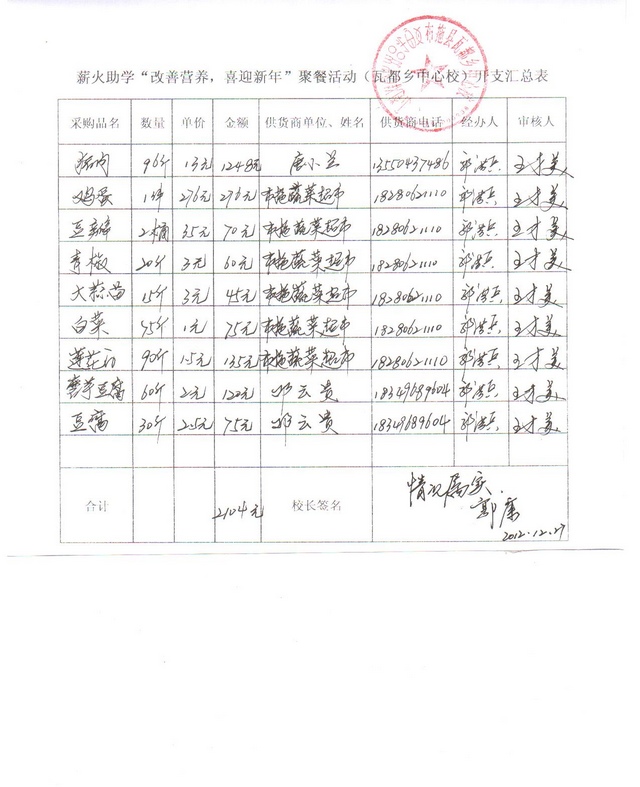 薪火助学“改善营养，喜迎新年”聚餐活动（瓦都乡中心校）开支汇总表
采购品名 数量 单价 金额 供货商单位、姓名 供货商电话 经办人 审核人
猪肉 96斤 13元 1248元 13550437486 王才美
鸡蛋 1件 276元 276元 布拖蔬菜超市 18280621110 王才美
豆瓣 2桶 35元 70元 布拖蔬菜超市 18280621110 王才美
青椒 20斤 3元 60元 布拖蔬菜超市 18280621110 王才美
大蒜苗 15斤 3元 45元 布拖蔬菜超市 18280621110 王才美
白菜 75斤 1元 75元 布拖蔬菜超市 18280621110 王才美
莲花白 90斤 1.5元 135元 布拖蔬菜超市 18280621110 王才美
魔芋豆腐 60斤 2元 120元 云贵 18349689604 王才美
豆腐 30斤 2.5元 75元 云贵 18349689604 王才美
合计 2104元 校长签名 情况属实.
2012.12.27